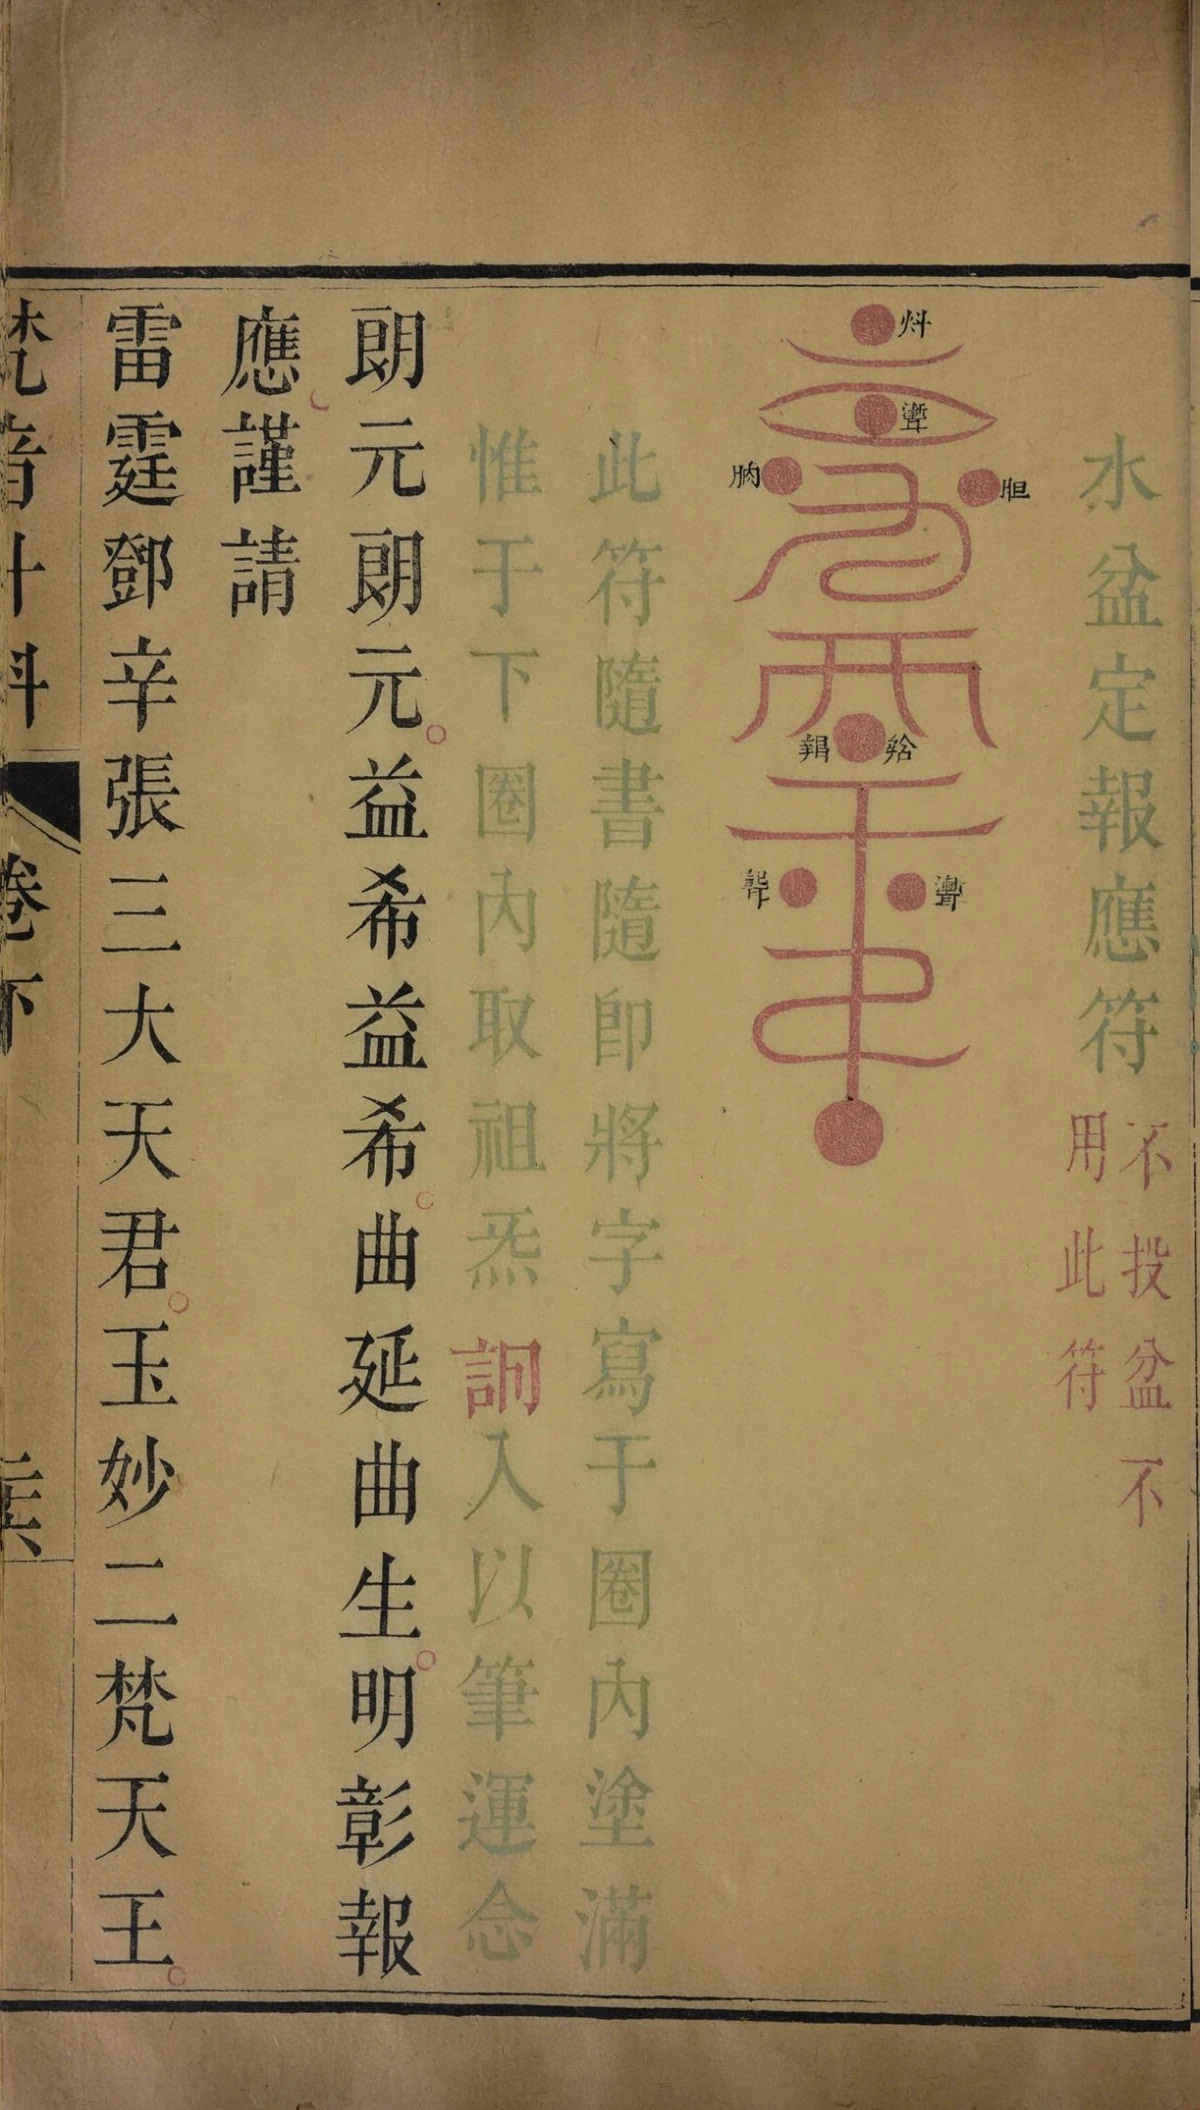 水盆定報應符
不投盆不
用此符
此符隨書隨即將字寫于圈內塗滿
惟于下圈內取祖炁訶入以筆運念
朗元朗元益希益希曲延曲生明彰報
應謹請
雷霆鄧辛張三大天君玉妙二梵天王
梵音斗科
卷下